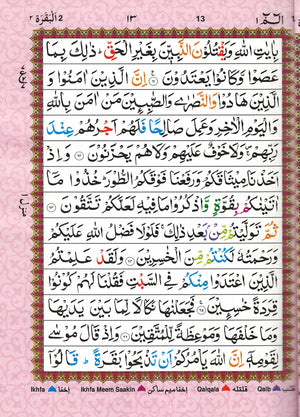 البقرة ٢ ١٣ 13 الٓمّٓ ١
بِاٰیٰتِ اللّٰهِ وَیَقْتُلُوْنَ النَّبِیّٖنَ بِغَیْرِ الْحَقِّ ؕ ذٰلِكَ بِمَا
عَصَوْا وَّكَانُوْا یَعْتَدُوْنَ ۟ اِنَّ الَّذِیْنَ اٰمَنُوْا وَ
الَّذِیْنَ هَادُوْا وَالنَّصٰرٰی وَالصّٰبِـِٕیْنَ مَنْ اٰمَنَ بِاللّٰهِ
وَالْیَوْمِ الْاٰخِرِ وَعَمِلَ صَالِحًا فَلَهُمْ اَجْرُهُمْ عِنْدَ
رَبِّهِمْ ۪ۚ وَلَا خَوْفٌ عَلَیْهِمْ وَلَا هُمْ یَحْزَنُوْنَ ۟ وَاِذْ
اَخَذْنَا مِیْثَاقَكُمْ وَرَفَعْنَا فَوْقَكُمُ الطُّوْرَ ؕ خُذُوْا مَاۤ
اٰتَیْنٰكُمْ بِقُوَّةٍ وَّاذْكُرُوْا مَا فِیْهِ لَعَلَّكُمْ تَتَّقُوْنَ ۟
ثُمَّ تَوَلَّیْتُمْ مِّنْ بَعْدِ ذٰلِكَ ۚ فَلَوْلَا فَضْلُ اللّٰهِ عَلَیْكُمْ
وَرَحْمَتُهٗ لَكُنْتُمْ مِّنَ الْخٰسِرِیْنَ ۟ وَلَقَدْ عَلِمْتُمُ
الَّذِیْنَ اعْتَدَوْا مِنْكُمْ فِی السَّبْتِ فَقُلْنَا لَهُمْ كُوْنُوْا
قِرَدَةً خٰسِـِٕیْنَ ۟ فَجَعَلْنٰهَا نَكَالًا لِّمَا بَیْنَ یَدَیْهَا
وَمَا خَلْفَهَا وَمَوْعِظَةً لِّلْمُتَّقِیْنَ ۟ وَاِذْ قَالَ مُوْسٰی
لِقَوْمِهٖۤ اِنَّ اللّٰهَ یَاْمُرُكُمْ اَنْ تَذْبَحُوْا بَقَرَةً ؕ قَالُوْۤا
Ikhfa اخفا Ikhfa Meem Saakin اخفا میم ساکن Qalqala قلقلہ Qalb قلب